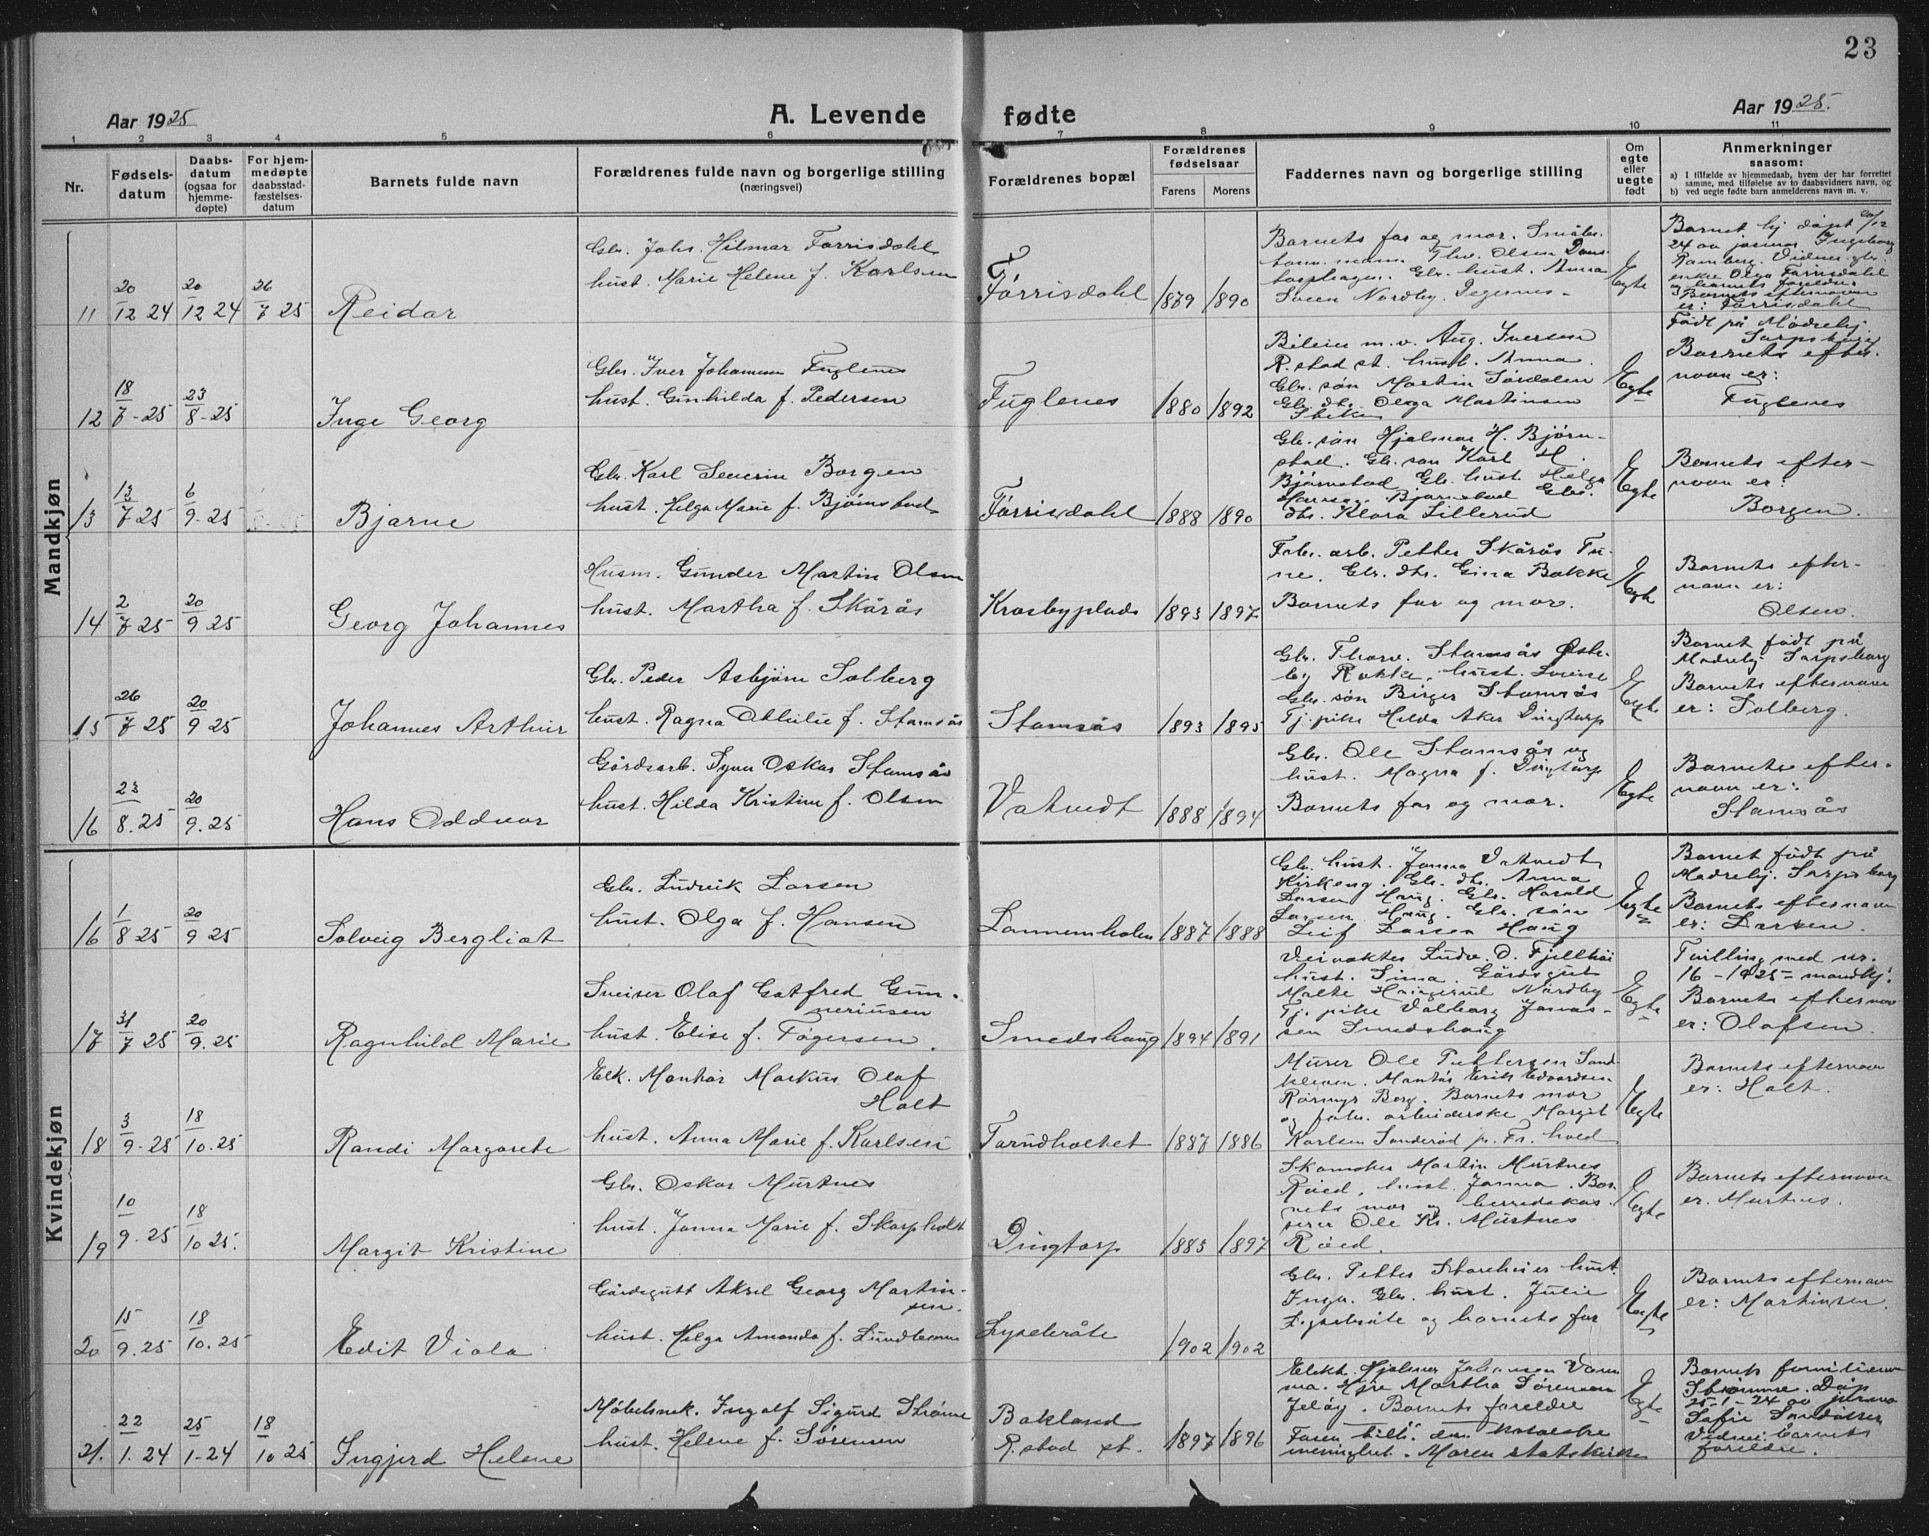 23
Aar 1925
A. Levende fødte
Aar 1925.
1 2 3 4 5 6 7 8 9 10 11
Nr.
Fødsels-
datum
Daabs-
datum
(ogsaa for
hjemme-
døpte)
For hjem-
medøpte
daabsstad-
fæstelses-
datum
Barnets fulde navn
Forældrenes fulde navn og borgerlige stilling
(næringsvei)
Forældrenes bopæl
Forældrenes
fødselsaar
Farens Morens
Faddernes navn og borgerlige stilling
Om
egte
eller
uegte
født
Anmerkninger
saasom:
a) I tilfælde av hjemmedaab, hvem der har forrettet
samme, med tilføielse av to daabsvidners navn, og
b) ved uegte fødte barn anmelderens navn m. v.
Mandkjøn
11
20/12 24
20/12 24
26/7 25
Reidar
Gbr. Johs. Hilmar Tørrisdahl
hust. Marie Helene f. Karlsen
Tørrisdahl
1879 1890
Barnets far og mor. Småbr.
Gbr. hust. Anna
Sveen Nordby. Degernes
Egte
Barnet hj døpt 20/12
24 av jormor Ingeborg
Ramberg. Vidner gbr.
enke Olga Tørrisdahl
og barnets foreldre
Barnets efternavn
er: Tørrisdahl
12
18/7 - 25
23/8 - 25
Inge Georg
Gbr. Iver Johannsen Fuglenes
hust. Gunhilda f. Pedersen
Fuglenes
1880 1892
Bileier m. v. Aug. Iversen
R.stad st. hust. Anna.
Gbr. søn Martin Sørdalen
Gbr. dtr. Olga Martinsen
Egte
Født på Mødrehj.
Sarpsborg
Barnets efter-
navn er:
Fuglenes
13
13/7 25
6/9 - 25
Bjarne
Gbr. Karl Severin Borgen
hust. Helga Marie f. Bjørnstad
Tørrisdahl
1888 1890
Gbr. søn Hjalmar H. Bjørn-
stad. Gbr. søn Karl H.
Bjørnstad Gbr. hust. Helga
Hansen Bjørnstad Gbr.
dtr. Klara Lillerud
Egte
Barnets efter-
navn er:
Borgen.
14
2/7 25
20/9 25
Georg Johannes
Husm. Gunder Martin Olsen
hust. Martha f. Skårås
Krosbyplads
1893 1897
Fabr. arb. Petter Skårås Tu-
ne. Gbr. dtr. Gina Bakke
Barnets far og mor.
Egte
Barnets efter-
navn er:
Olsen.
15
26/7 25
20/9 25
Johannes Arthur
Gbr. Peder Asbjørn Solberg
hust. Ragna Othilie f. Stamsås
Stamsås
1893 1895
Gbr. Thorv. Stamsås Øste-
by Rakke, hust. Lovise
Gbr. søn Birger Stamsås
Tj. pike Hilda Aker Dingtorp
Egte
Barnet født på
Mødrehj. Sarpsborg
Barnets efternavn
er: Solberg.
16
23/8. 25
20/9. 25
Hans Oddvar
Gårdsarb. Syver Oskar Stamsås
hust. Hilda Kristine f. Olsen
Vatvedt
1888 1894
Gbr. Ole Stamsås og
hust. Magna f. Dingtorp
Barnets far og mor.
Egte
Barnets efter-
navn er:
Stamsås
Kvindekjøn
16
1/8 25
20/9 25
Solveig Bergliot
Gbr. Ludvik Larsen
hust. Olga f. Hansen
Lannemholm
1887 1888
Gbr. hust. Janna Vatvedt
Kirkeng. Gbr. dtr. Anna
Larsen Haug. Gbr. Harald
Larsen Haug. Gbr. søn
Leif Larsen Haug
Egte
Barnet født på
Mødrehj. Sarpsborg
Barnets efternavn
er: Larsen.
17
31/7 25
20/9. 25
Ragnhild Marie
Sveiser Olaf Gotfred Gun-
neriusen
hust. Elise f. Tøgersen.
Smedshaug
1894 1891
Veivokter Ludv. O. Fjellhøi
hust. Sina. Gårdsgut
Malte Nordby
Tj. pike Valborg Janas-
sen Smedshaug
Egte
Tvilling med nr.
16 - 1925 - mandkj.
Barnets efternavn
er: Olafsen.
18
3/9. 25
18/10. 25
Randi Margarete
Elk. Montør Markus Olaf
Holt
hust. Anna Marie f. Karlsen
Tarudholtet
1887 1886
Murer Ole Pettersen Sand-
kleven. Montør Erik Edvardsen
Rørmyr Berg. Barnets mor
og fabr. arbeiderske Margit
Karlsen Sanderød pr. Fr.hald
Egte
Barnets efternavn
er: Holt.
19
10/9. 25
18/10 25.
Margit Kristine
Gbr. Oskar Murtnes
hust. Janna Marie f. Skarpholt
Dingtorp
1885 1897
Skomaker Martin Murtnes
Røed, hust. Janna. Bar-
nets mor og herredskas-
serer Ole Kr. Murtnes
Røed.
Egte
Barnets efternavn
er. Murtnes.
20
15/9. 25
18/10. 25
Edit Viola
Gårdsgutt Aksel Georg Martin-
sen.
hust. Helga Amanda f.
1902 1902
Gbr. Petter hust.
Inga. Gbr. hust. Julie
og barnets far
Egte
Barnets efternavn
er: Martinsen.
21.
22/1. 24
25/1 - 24
18/10 25
Ingjerd Helene
Møbelsnek. Ingolf Sigurd Strømme
hust. Helene f. Sørensen
Bakland
R.stad st.
1897 1896
Elekt. Hjalmar Johansen Van-
Martha Sørensen
Jeløy. Barnets foreldre
Faren tilh. den
menighet. Moren statskirken
Egte
Barnets familienavn
Strømme. Døp
25-1-24 av jormor
Sofie
Vidner barnets
foreldre.